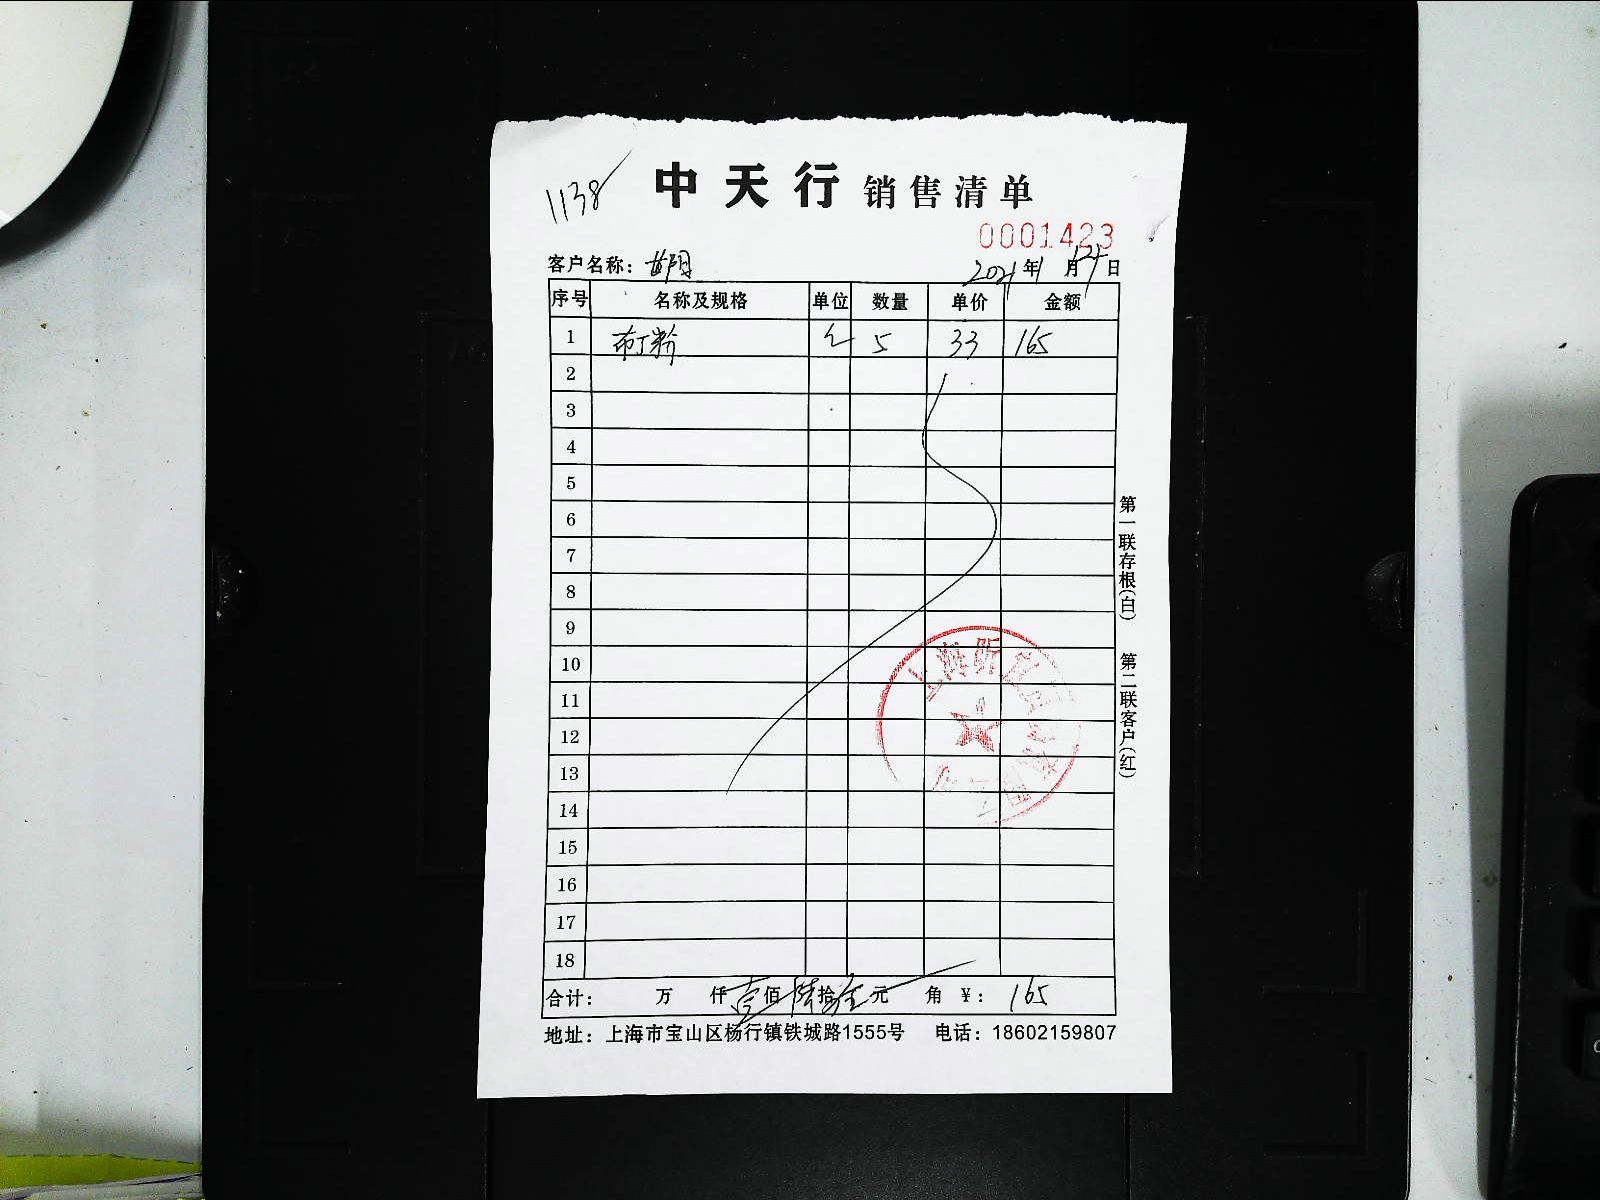 1138
中天行 销售清单
0001423
客户名称： 2021年1月24日
序号 名称及规格 单位 数量 单价 金额
1 布丁粉 包 5 33 165
2
3
4
5
6
7
8
9
10
11
12
13
14
15
16
17
18
合计： 万 仟壹佰陆拾伍元 角 ¥： 165
地址：上海市宝山区杨行镇铁城路1555号 电话：18602159807
第一联存根(白) 第二联客户(红)
上海